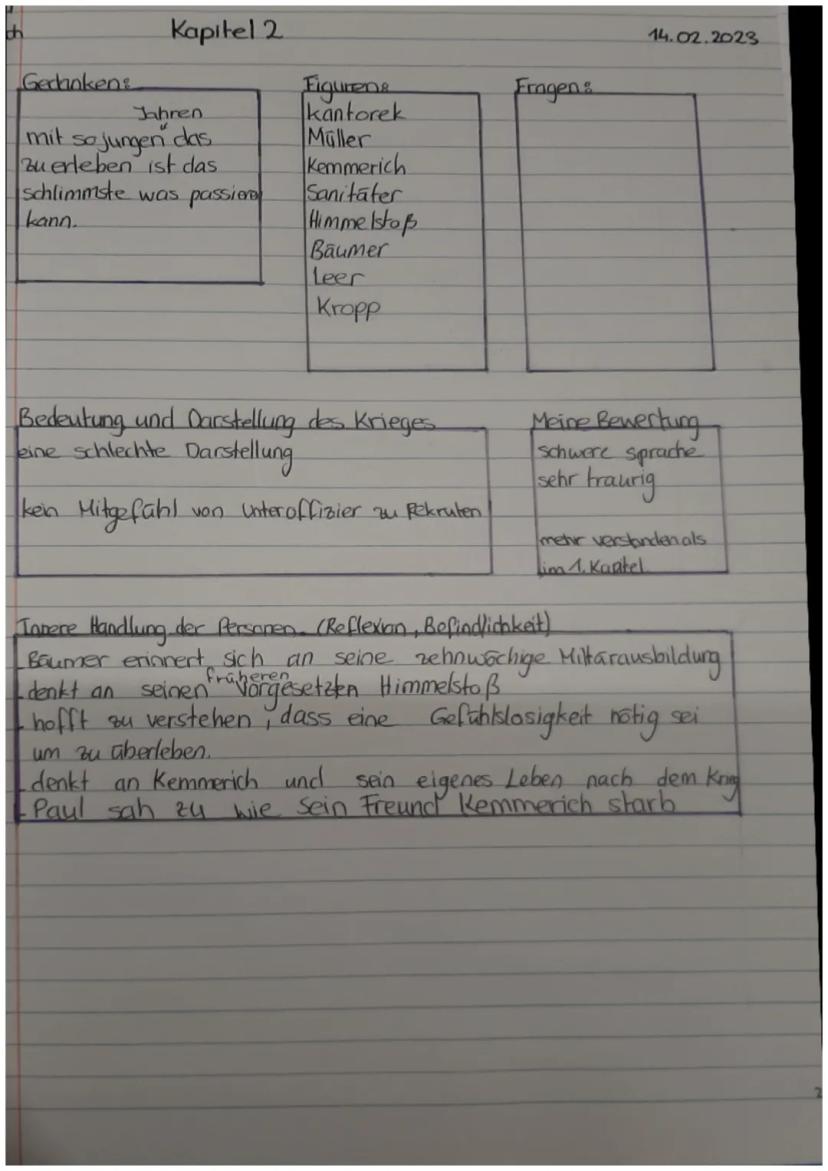 ch
Kapitel 2
14.02.2023
Gedanken:
Jahren
mit so jungen " das
zu erleben ist das
schlimmste was passieren
kann.
Figuren:
Kantorek
Müller
Kemmerich
Sanitäter
Himmelstoß
Bäumer
Leer
Kropp
Fragen:
Bedeutung und Darstellung des Krieges
eine schlechte Darstellung
kein Mitgefühl von Unteroffizier zu Rekruten
Meine Bewertung
schwere sprache
sehr traurig
mehr verstanden als
im 1. Kapitel
Innere Handlung der Personen. (Reflexion, Befindlichkeit)
- Bäumer erinnert sich an seine zehnwöchige Militärausbildung
früheren
- denkt an seinen " Vorgesetzten Himmelstoß
- hofft zu verstehen, dass eine Gefühlslosigkeit nötig sei
um zu überleben.
- denkt an Kemmerich und sein eigenes Leben nach dem Krieg
- Paul sah zu wie sein Freund Kemmerich starb
2